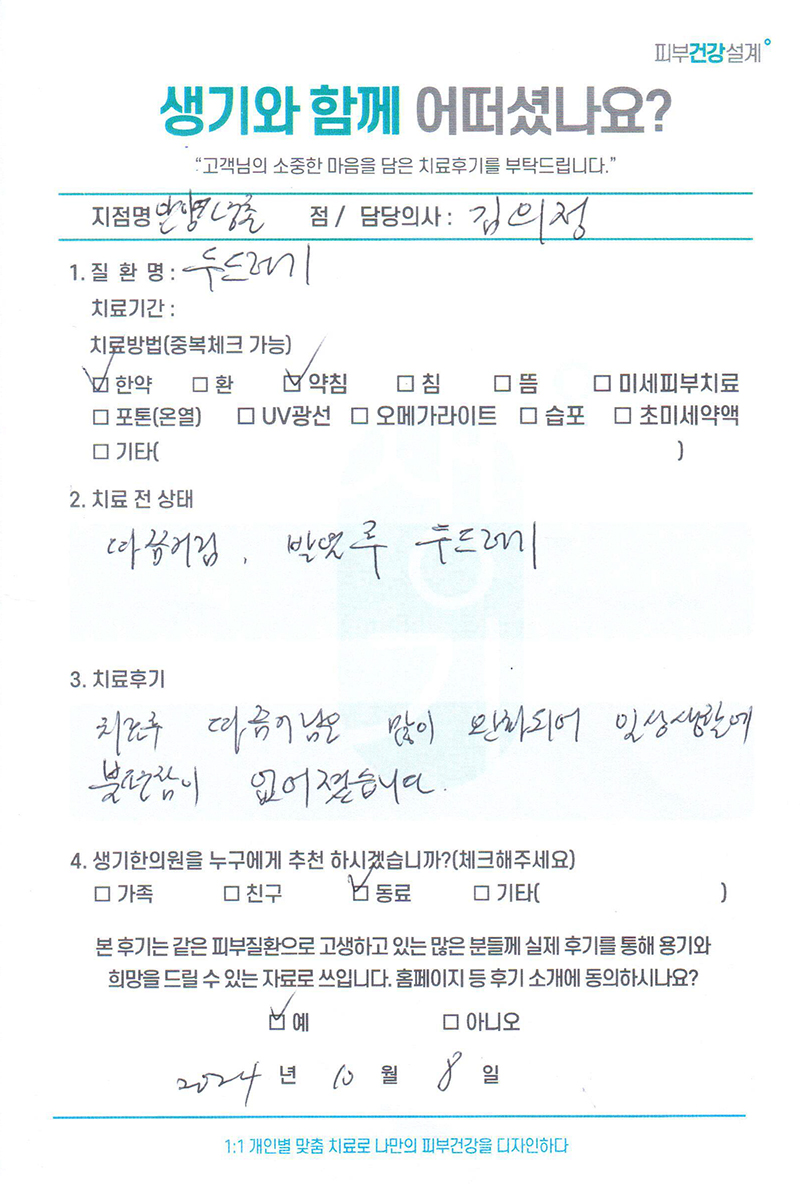 피부건강설계
생기와 함께 어떠셨나요?
“고객님의 소중한 마음을 담은 치료후기를 부탁드립니다.”
지점명 안양평촌 점 / 담당의사 : 김의정
1. 질 환 명 : 두드러기
치료기간 :
치료방법(중복체크 가능)
☑ 한약 □ 환 ☑ 약침 □ 침 □ 뜸 □ 미세피부치료
□ 포톤(온열) □ UV광선 □ 오메가라이트 □ 습포 □ 초미세약액
□ 기타( )
2. 치료 전 상태
따끔거림, 발열 후 두드러기
3. 치료후기
치료후 따끔거림은 많이 완화되어 일상생활에
불편함이 없어졌습니다.
4. 생기한의원을 누구에게 추천 하시겠습니까?(체크해주세요)
□ 가족 □ 친구 ☑ 동료 □ 기타( )
본 후기는 같은 피부질환으로 고생하고 있는 많은 분들께 실제 후기를 통해 용기와
희망을 드릴 수 있는 자료로 쓰입니다. 홈페이지 등 후기 소개에 동의하시나요?
☑ 예 □ 아니오
2024 년 10 월 8 일
1:1 개인별 맞춤 치료로 나만의 피부건강을 디자인하다